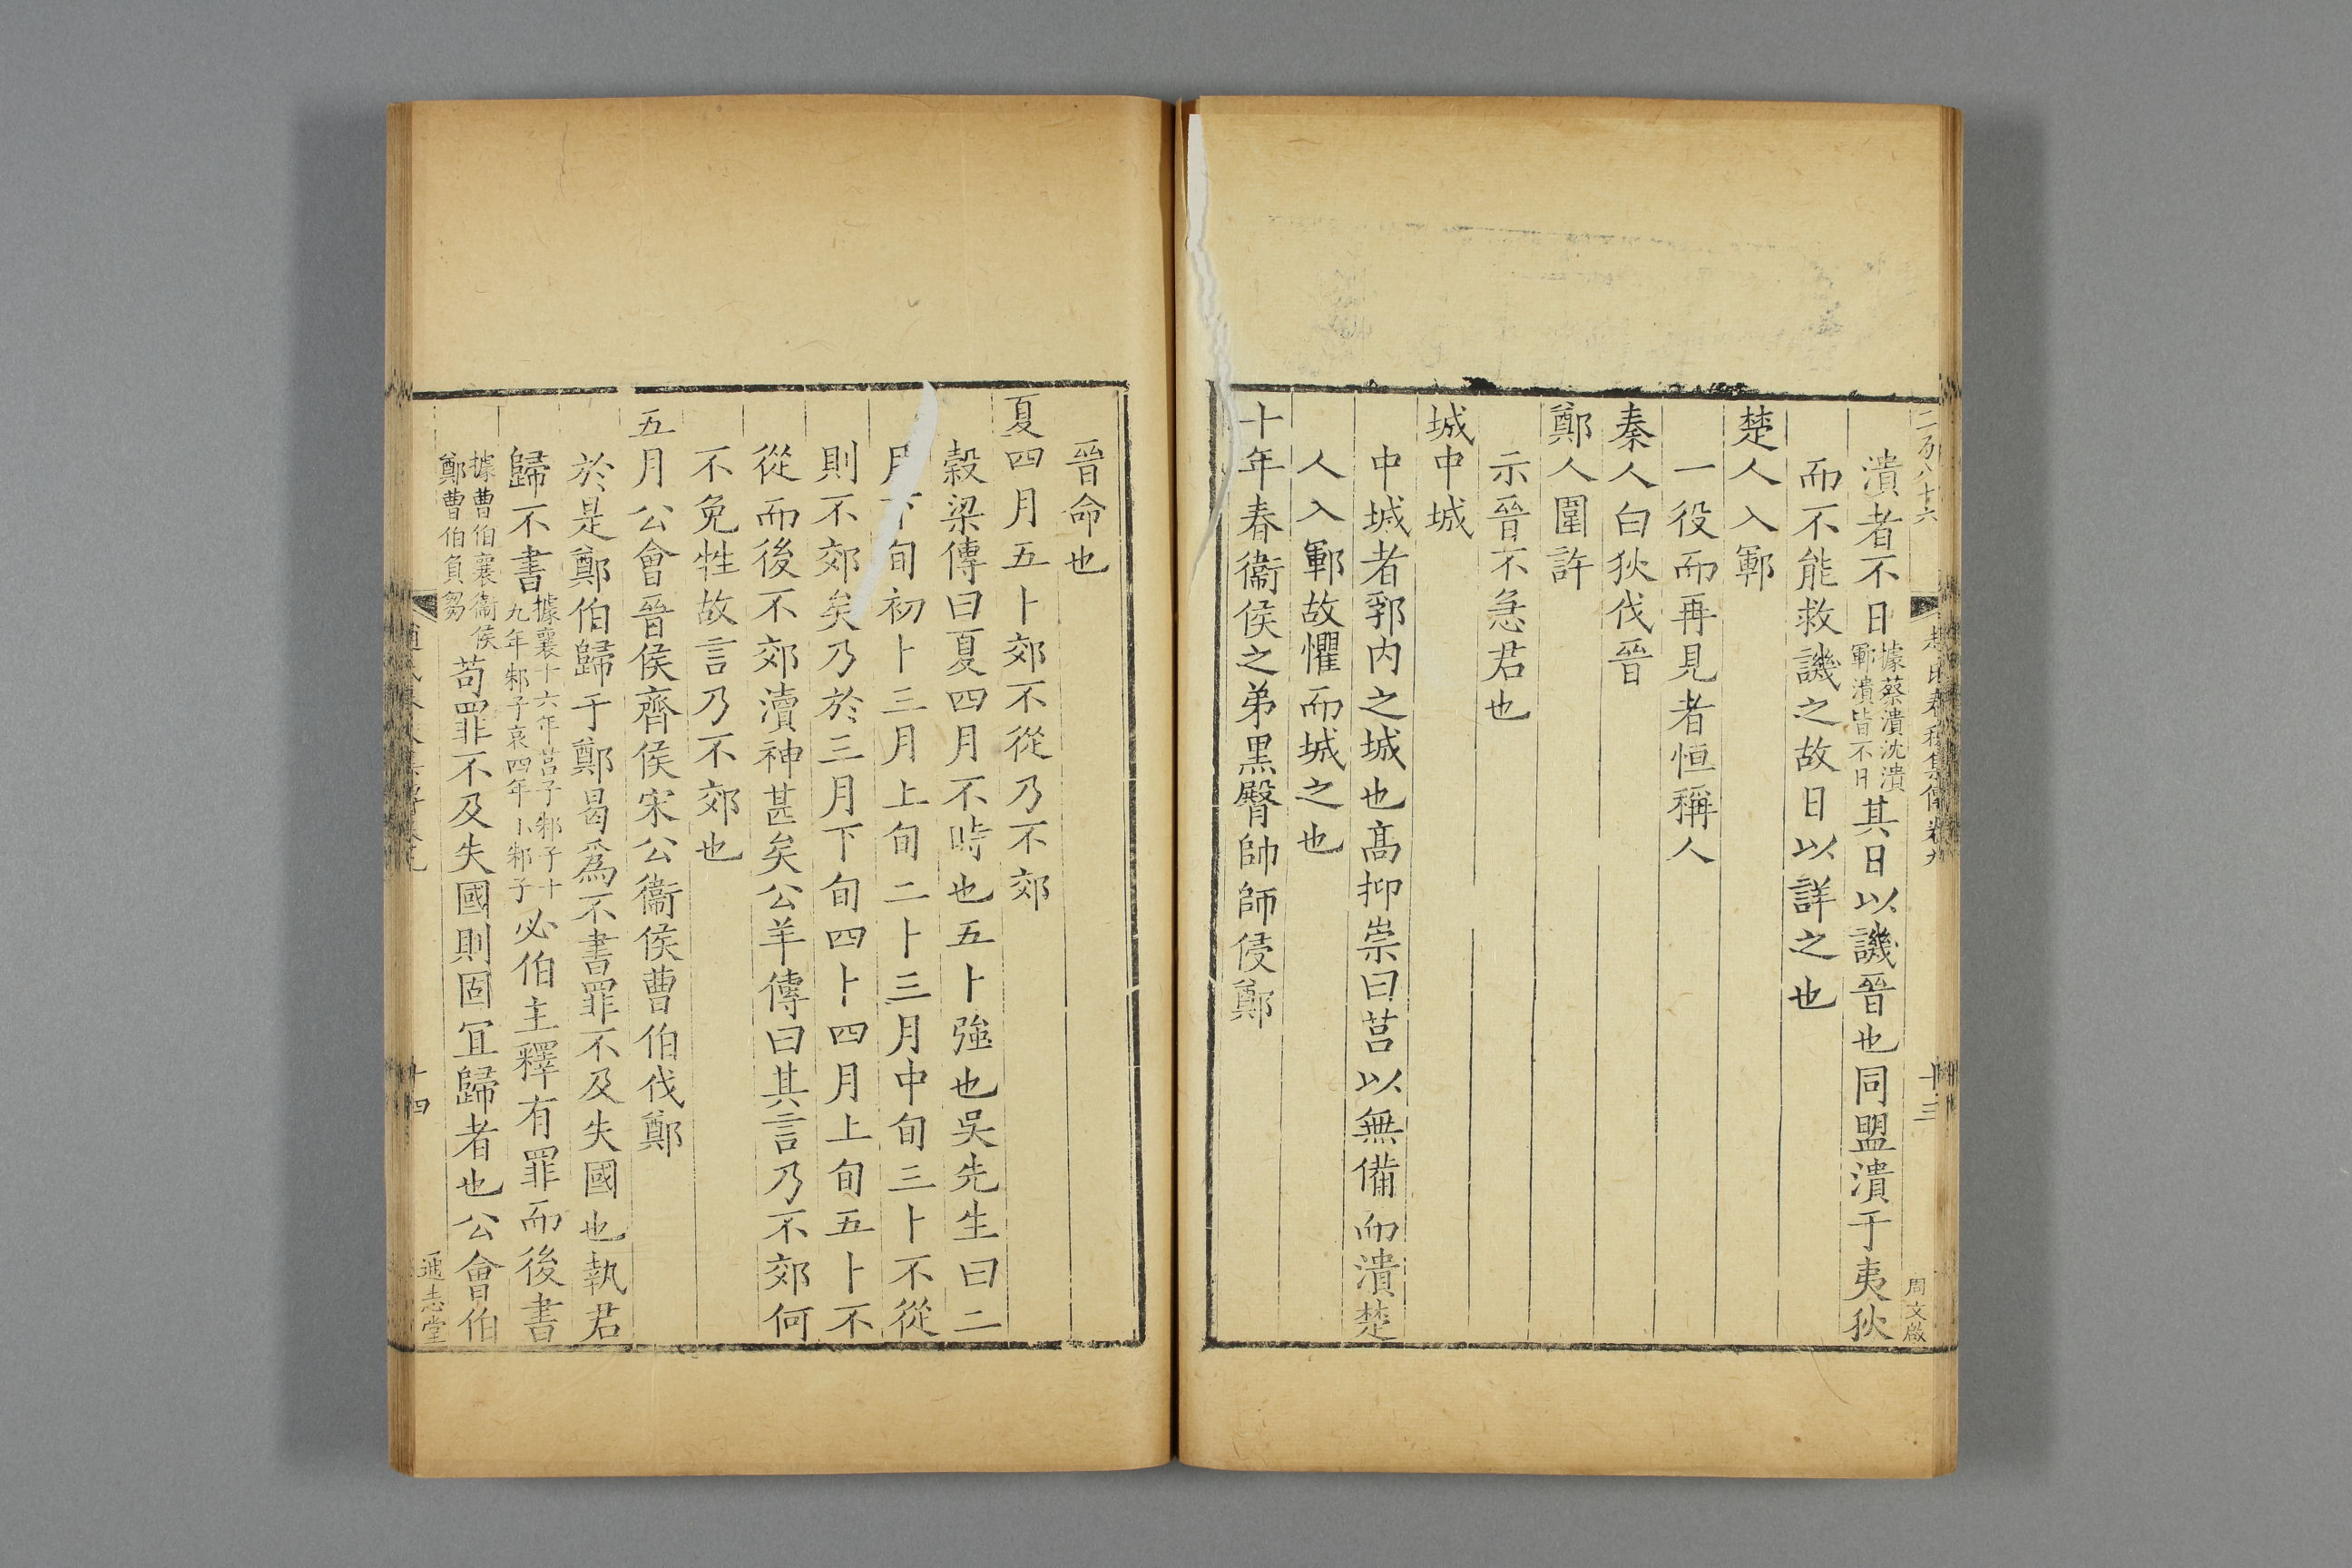 二百八十六
潰者不日據蔡潰沈潰鄆潰皆不日其日以譏晉也同盟潰于夷狄
而不能救譏之故日以詳之也
楚人入鄆
一役而再見者恒稱人
秦人白狄伐晉
鄭人圍許
示晉不急君也
城中城
中城者郛内之城也髙抑崇曰莒以無備而潰楚
人入鄆故懼而城之也
十年春衞侯之弟黑臀帥師侵鄭
十三
周文啟
晉命也
夏四月五卜郊不從乃不郊
榖梁傳曰夏四月不時也五卜強也吳先生曰二
月下旬初卜三月上旬二卜三月中旬三卜不從
則不郊矣乃於三月下旬四卜四月上旬五卜不
從而後不郊瀆神甚矣公羊傳曰其言乃不郊何
不免牲故言乃不郊也
五月公會晉侯齊侯宋公衞侯曹伯伐鄭
於是鄭伯歸于鄭曷爲不書罪不及失國也執君
歸不書據襄十六年莒子邾子十九年邾子哀四年小邾子必伯主釋有罪而後書
據曹伯襄衞侯鄭曹伯負芻苟罪不及失國則固冝歸者也公會伯
十四
通志堂